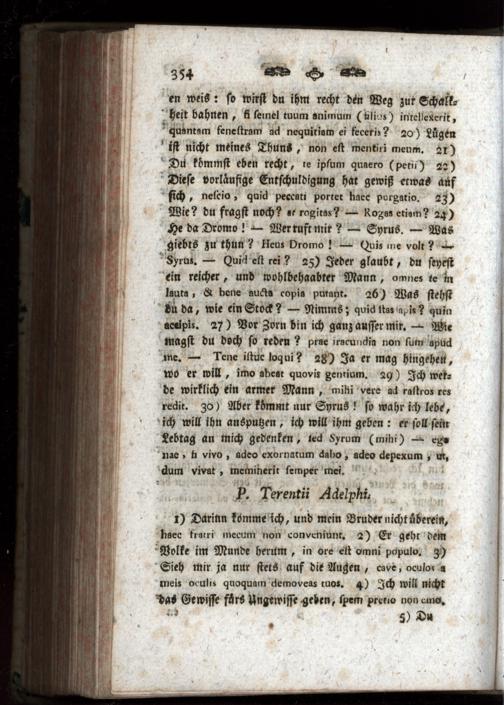 354
en weis : so wirst du ihm recht den Weg zur Schalk=
heit bahnen, si semel tuum animum (filius) intellexerit,
quantam fenestram ad nequitiam ei feceris? 20) Lügen
ist nicht meines Thuns, non est mentiri meum. 21)
Du kömmst eben recht, te ipsum quaero (petii) 22)
Diese vorläufige Entschuldigung hat gewiß etwas auf
sich, nescio, quid peccati portet haec purgatio. 23)
Wie? du fragst noch? at rogitas? — Rogas etiam? 24)
He da Dromo! — Wer ruft mir? — Syrus. — Was
giebts zu thun? Heus Dromo! — Quis me volt? —
Syrus. — Quid est rei? 25) Jeder glaubt, du seyest
ein reicher, und wohlbehaabter Mann, omnes te in
lauta, & bene aucta copia putant. 26) Was stehst
du da, wie ein Stock? — Nimms; quid stas lapis? quin
accipis. 27) Vor Zorn bin ich ganz ausser mir. — Wie
magst du doch so reden? prae iracundia non sum apud
me. — Tene istuc loqui? 28) Ja er mag hingehen,
wo er will, imo abeat quovis gentium. 29) Ich wer=
de wirklich ein armer Mann, mihi vere ad rastros res
redit. 30) Aber kömmt nur Syrus! so wahr ich lebe,
ich will ihn ausputzen, ich will ihm geben: er soll sein
Lebtag an mich gedenken, sed Syrum (mihi) — ego
nae, si vivo, adeo exornatum dabo, adeo depexum, ut,
dum vivat, meminerit semper mei.
P. Terentii Adelphi.
1) Darinn komme ich, und mein Bruder nicht überein,
haec fratri mecum non conveniunt. 2) Er geht dem
Volke im Munde herum, in ore est omni populo. 3)
Sieh mir ja nur stets auf die Augen, cave, oculos a
meis oculis quoquam demoveas tuos. 4) Ich will nicht
das Gewisse fürs Ungewisse geben, spem pretio non emo.
5) Du